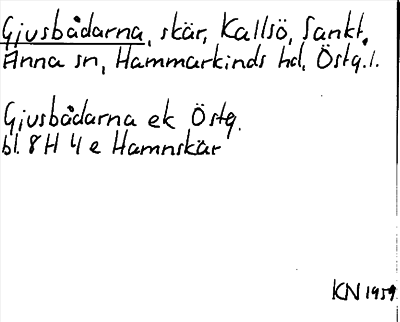 Gjusbådarna, skär, Kallsö, Sankt
Anna sn, Hammarkinds hd, Östg.l.
Gjusbådarna ek Östg.
bl. 8H 4e Hamnskär
KN 1959